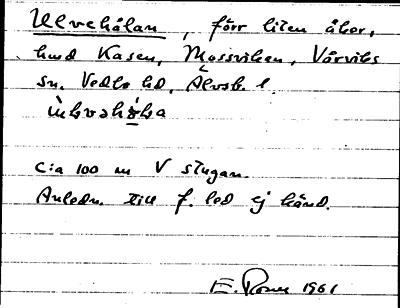 Ulvehålan, förr liten åker,
hmd Kasen, Mossviken, Vårviks
sn. Vedbo hd, Älvsb. l.
c:a 100 m V stugan.
Anledn. till f. led ej känd.
E. 1961